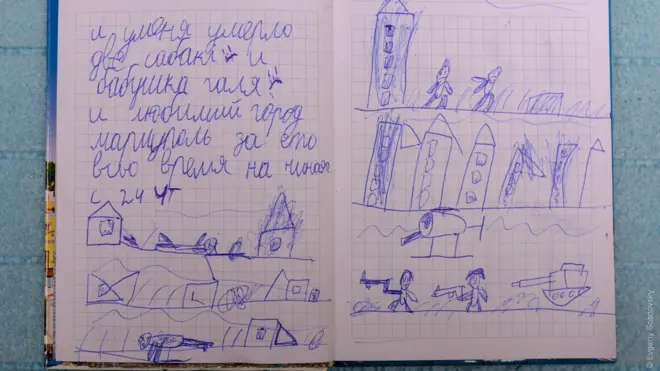 и у меня умерло
две сабаки и
бабушка галя
и любимий город
мариуполь за ето
всю время на чиная
с 24 чт
© Evgeny Sosnovsky